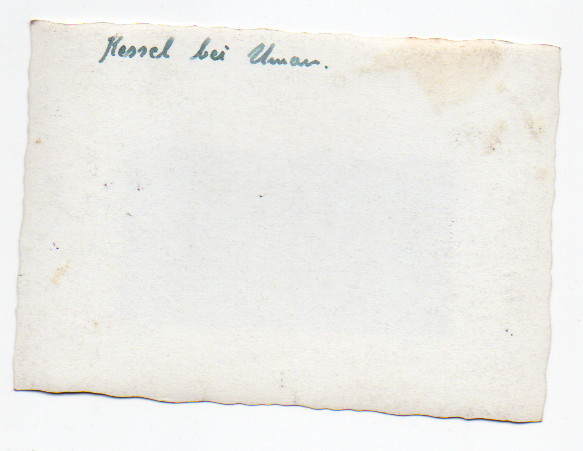 Kessel bei Uman.